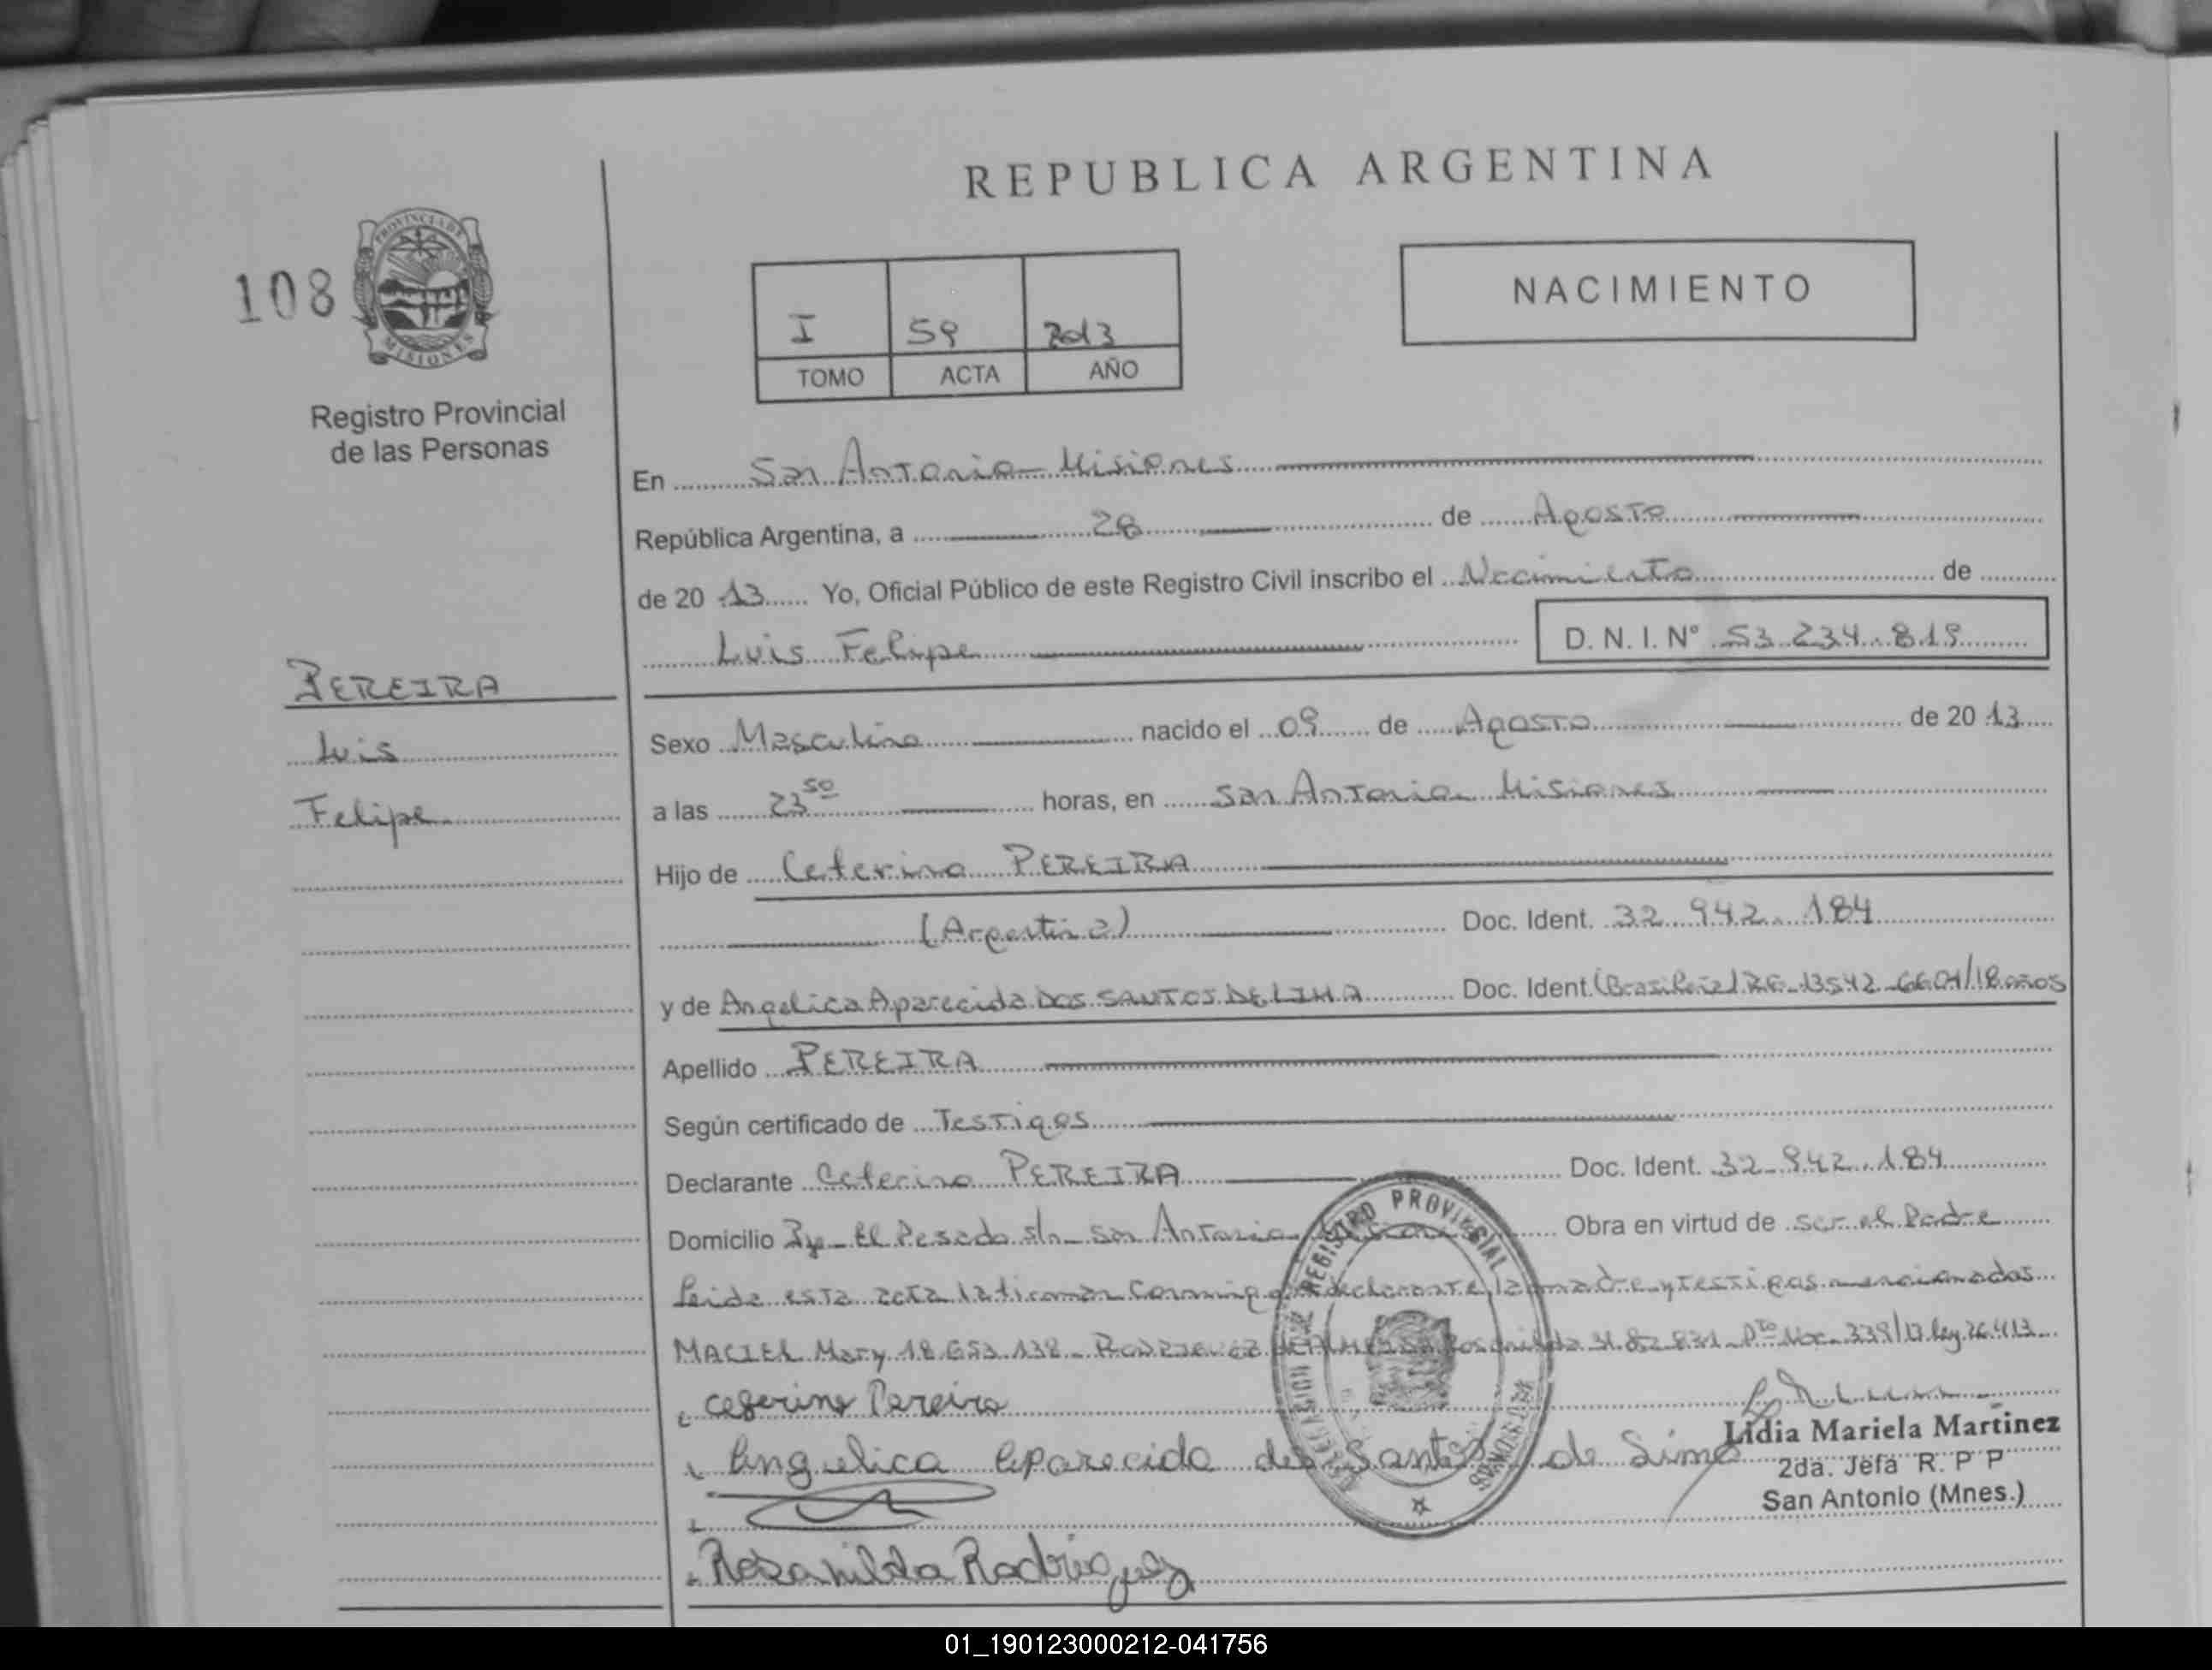 REPUBLICA ARGENTINA
108
PROVINCIA DE
MISIONES
Registro Provincial
de las Personas
I 59 2013
TOMO ACTA AÑO
NACIMIENTO
En San Antonio - Misiones
República Argentina, a 28 de Agosto
de 20 13 Yo, Oficial Público de este Registro Civil inscribo el Nacimiento de
Luis Felipe D. N. I. Nº 53.234.819
PEREIRA
Luis
Felipe
Sexo Masculino nacido el 09 de Agosto de 20 13
a las 23 50 horas, en San Antonio - Misiones
Hijo de Ceferino PEREIRA
(Argentina) Doc. Ident. 32.942.184
y de Angelica Aparecida DOS SANTOS DE LIMA Doc. Ident. (Brasileña) 13542 /18 años
Apellido PEREIRA
Según certificado de Testigos
Declarante Ceferino PEREIRA Doc. Ident. 32.942.184
Domicilio El Pesado s/n - San Antonio Obra en virtud de ser el Padre
Leida esta acta la firman conmigo declarante, la madre y testigos mencionados
MACIEL Mary 18.653.138 - RODRIGUEZ DE ALMEIDA Rosanilda Nac. 339/13 ley 26.413
Ceferino Pereira
Angelica Aparecida dos Santos de Lima
Rosanilda Rodriguez
REGISTRO PROVINCIAL
Lidia Mariela Martinez
2da. Jefa R. P P
San Antonio (Mnes.)
01_190123000212-041756